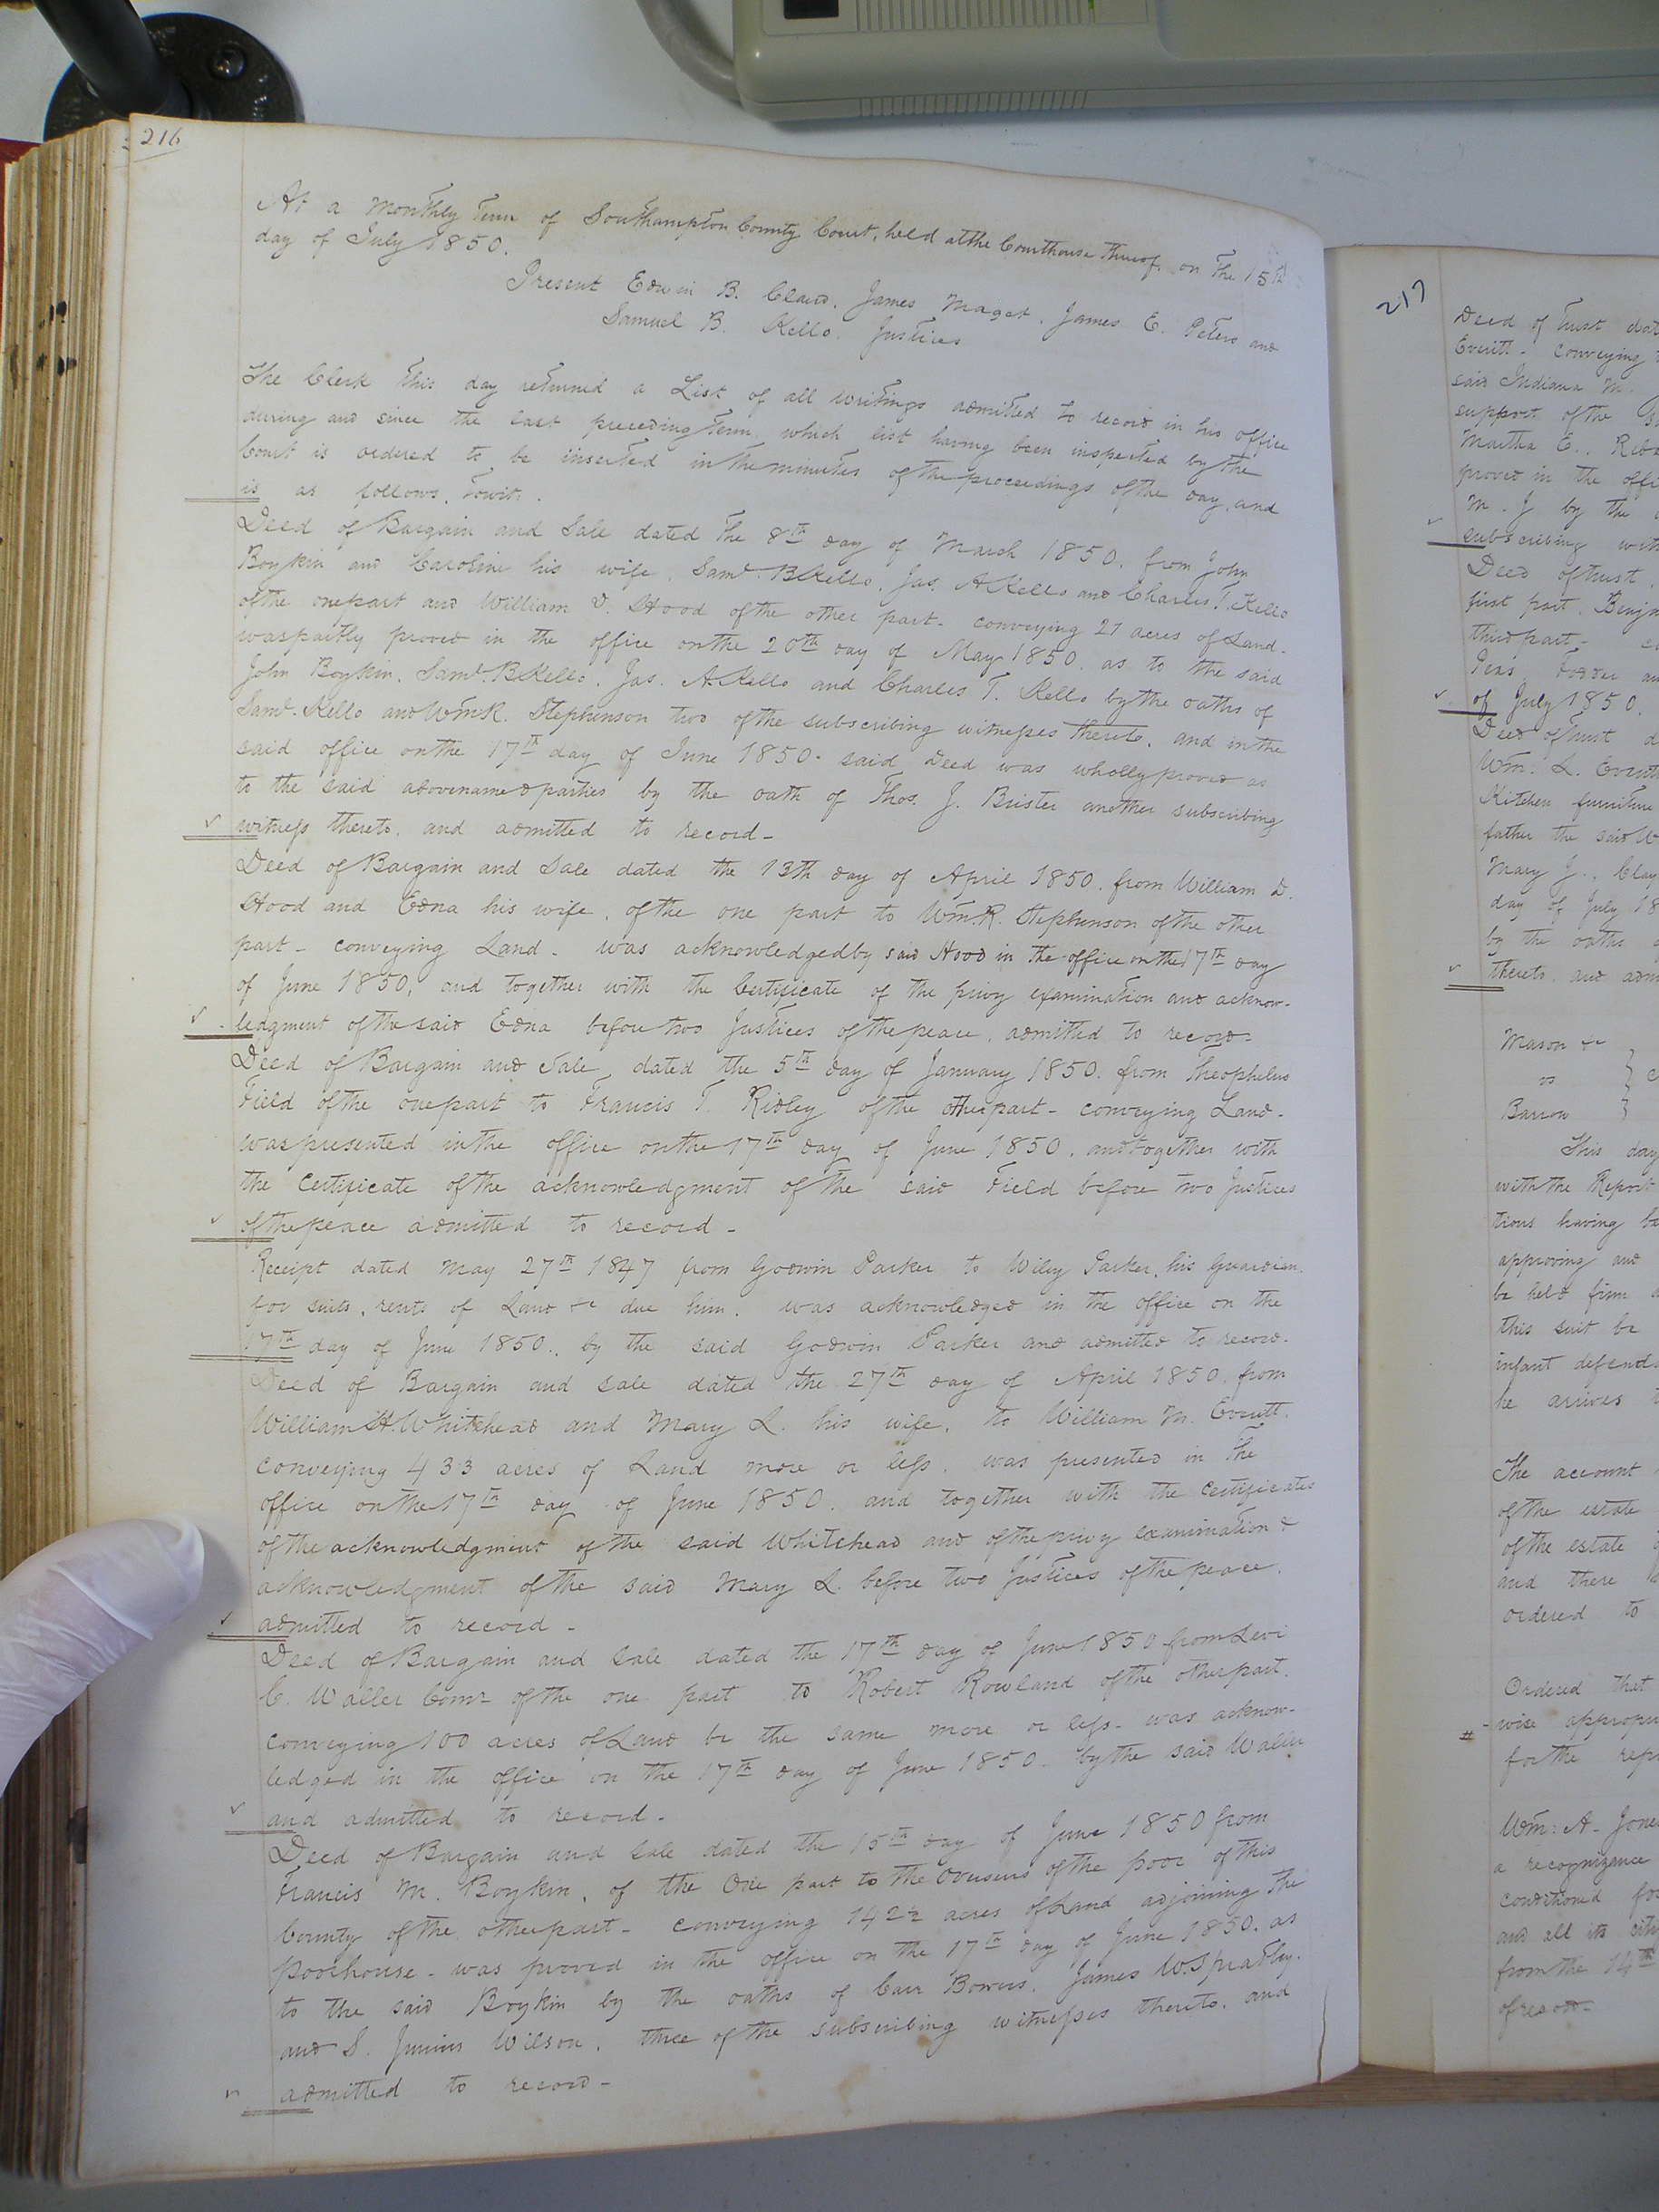 216
At a Monthly Term of Southampton County Court, held at the Courthouse thereof, on the 15th
day of July 1850.
Present Edwin B. Claud, James Maget, James E. Peters and
Samuel B. Kello, Justices
The Clerk this day returned a List of all writings admitted to record in his office
during and since the last preceding Term, which list having been inspected by the
Court is ordered to be inserted in the minutes of the proceedings of the day, and
is as follows, Towit.
Deed of Bargain and Sale dated the 8th day of March 1850, from John
Boykin and Caroline his wife, Saml. B Kello, Jas. A Kello and Charles T. Kello
of the one part and William D. Hood of the other part - conveying 21 acres of Land -
was partly proved in the office on the 20th day of May 1850, as to the said
John Boykin, Saml. B Kello, Jas. A. Kello and Charles T. Kello by the oaths of
Saml. Kello and Wm R. Stephenson two of the subscribing witnesses thereto, and in the
said office on the 17th day of June 1850 - said Deed was wholly proved as
to the said abovenamed parties by the oath of Thos. J. Brister another subscribing
witness thereto, and admitted to record -
Deed of Bargain and Sale dated the 13th day of April 1850, from William D.
Hood and Edna his wife, of the one part to Wm. R. Stephenson of the other
part - conveying Land - was acknowledged by said Hood in the office on the 17th day
of June 1850, and together with the Certificate of the privy examination and acknow-
ledgment of the said Edna before two Justices of the peace, admitted to record -
Deed of Bargain and Sale, dated the 5th day of January 1850, from Theophelus
Field of the one part to Francis T. Ridley of the other part - conveying Land -
was presented in the office on the 17th day of June 1850, and together with
the Certificate of the acknowledgment of the said Field before two Justices
of the peace admitted to record -
Receipt dated May 27th 1847 from Godwin Parker to Wiley Parker, his Guardian,
for suits, rents of Land &c due him, was acknowledged in the office on the
17th day of June 1850, by the said Godwin Parker and admitted to record -
Deed of Bargain and sale dated the 27th day of April 1850, from
William H. Whitehead and Mary L. his wife, to William M. Everett,
conveying 433 acres of Land more or less, was presented in the
office on the 17th day of June 1850, and together with the certificates
of the acknowledgment of the said Whitehead and of the privy examination &
acknowledgment of the said Mary L. before two Justices of the peace,
admitted to record -
Deed of Bargain and sale dated the 17th day of June 1850 from Levi
C. Waller Comr of the one part to Robert Rowland of the other part,
conveying 100 acres of Land be the same more or less - was acknow-
ledged in the office on the 17th day of June 1850 - by the said Waller
and admitted to record -
Deed of Bargain and sale dated the 15th day of June 1850 from
Francis M. Boykin, of the One part to the Overseers of the poor of this
County of the other part - conveying 142½ acres of Land adjoining the
poorhouse - was proved in the office on the 17th day of June 1850, as
to the said Boykin by the oaths of Carr Bowers, James W. Spratley,
and S. Junius Wilson, three of the subscribing witnesses thereto, and
admitted to record -
217
Deed of Trust
Everitt - conveying
said Indiana M.
support of the
Martha E.,
proved in the
M. J by the
subscribing
Deed of trust,
first part,
third part -
Peas, Fodder
of July 1850,
Deed of Trust
Wm: L.
Kitchen furniture
father the said
Mary J.,
day of July
by the oaths
thereto, and
Mason &c
vs
Barrow
This day
with the Report
tions having
approving and
be held firm
this suit be
infant
he arrives
The account
of the estate
of the estate
and there
ordered to
Ordered that
wise
for the
Wm: A. Jones
a recognizance
conditioned
and all its
from the 14th
of record -